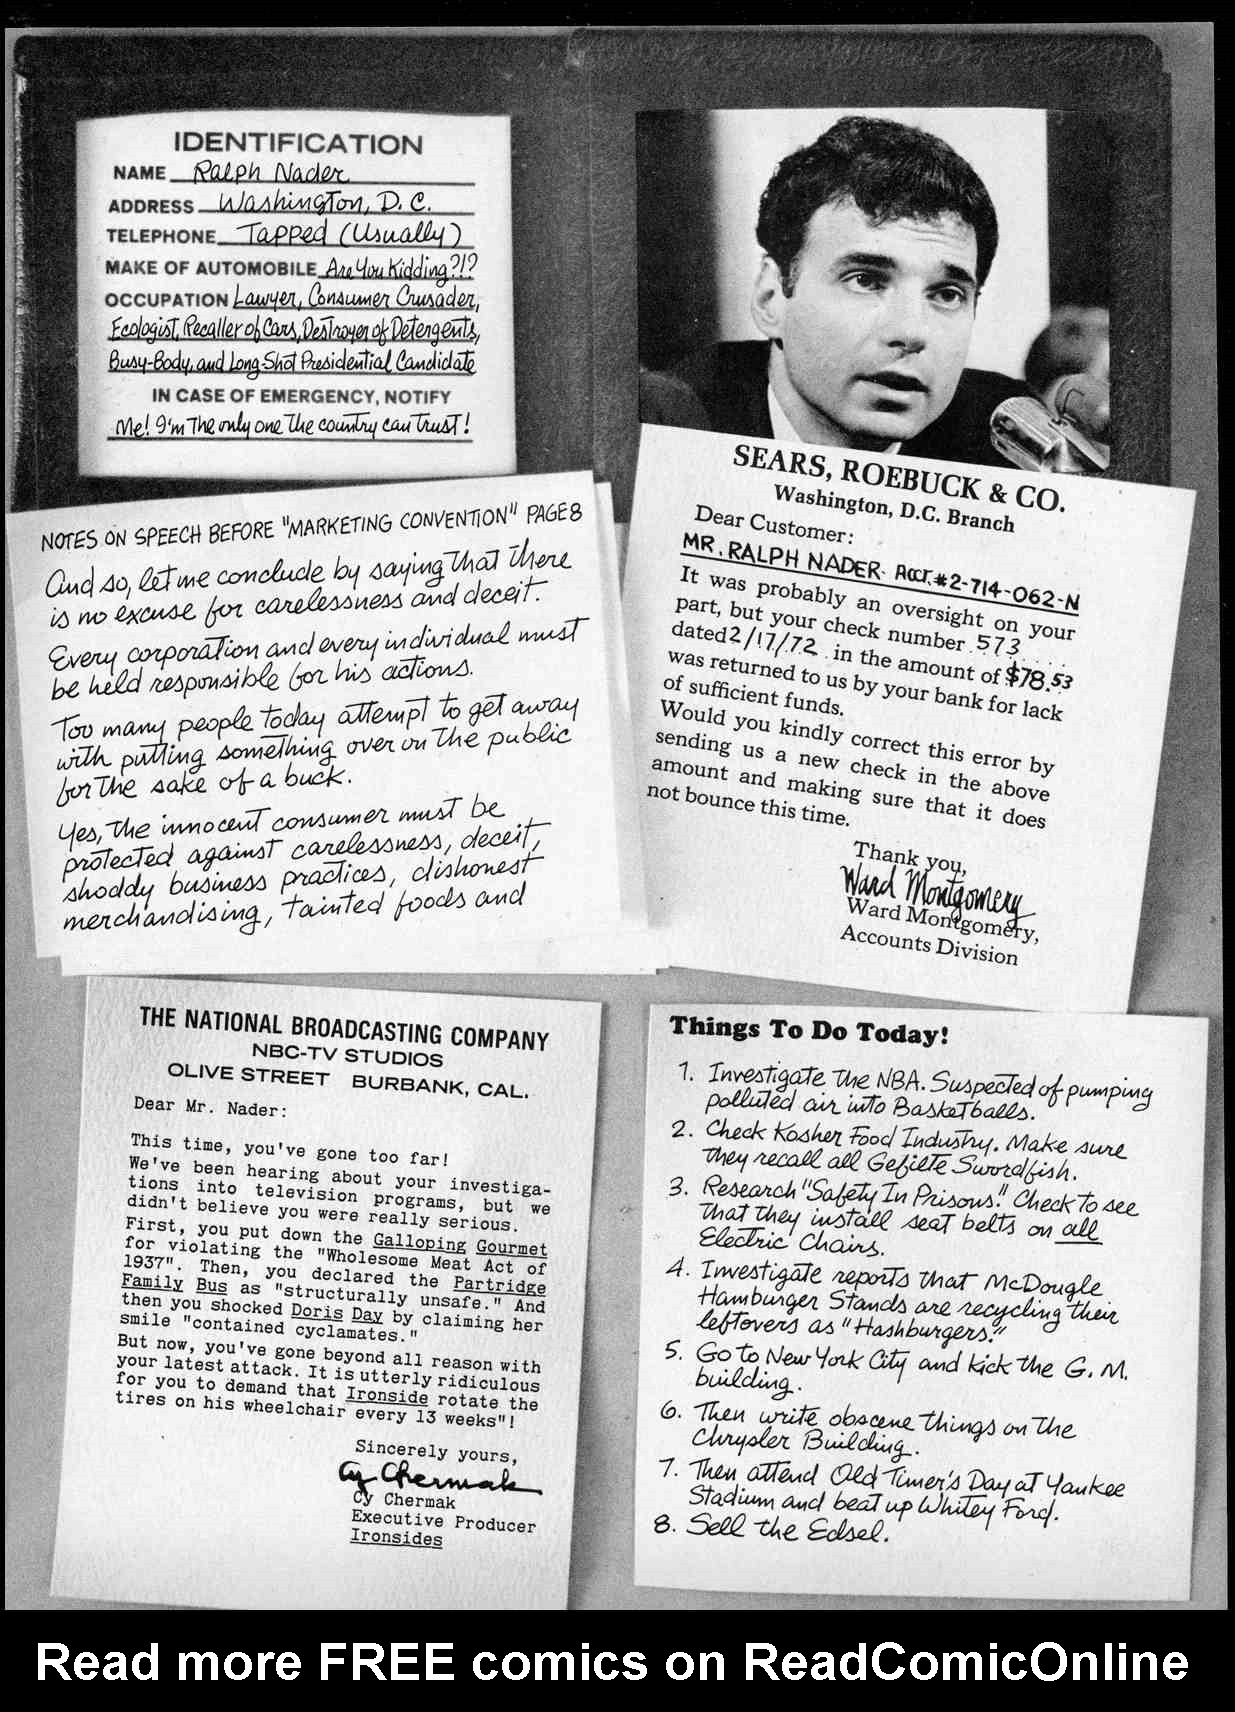 IDENTIFICATION
NAME Ralph Nader
ADDRESS Washington, D.C.
TELEPHONE Tapped (Usually)
MAKE OF AUTOMOBILE Are You Kidding?!?
OCCUPATION Lawyer, Consumer Crusader,
Ecologist, Recaller of Cars, Destroyer of Detergents,
Busy-Body, and Long-Shot Presidential Candidate
IN CASE OF EMERGENCY, NOTIFY
Me! I'm the only one the country can trust!
NOTES ON SPEECH BEFORE "MARKETING CONVENTION" PAGE 8
And so, let me conclude by saying that there
is no excuse for carelessness and deceit.
Every corporation and every individual must
be held responsible for his actions.
Too many people today attempt to get away
with putting something over on the public
for the sake of a buck.
Yes, the innocent consumer must be
protected against carelessness, deceit,
shoddy business practices, dishonest
merchandising, tainted foods and
SEARS, ROEBUCK & CO.
Washington, D.C. Branch
Dear Customer:
MR. RALPH NADER- Acct. #2-714-062-N
It was probably an oversight on your
part, but your check number 573....
dated 2/17/72 in the amount of $78.53
was returned to us by your bank for lack
of sufficient funds.
Would you kindly correct this error by
sending us a new check in the above
amount and making sure that it does
not bounce this time.
Thank you,
Ward Montgomery
Ward Montgomery,
Accounts Division
THE NATIONAL BROADCASTING COMPANY
NBC-TV STUDIOS
OLIVE STREET BURBANK, CAL.
Dear Mr. Nader:
This time, you've gone too far!
We've been hearing about your investiga-
tions into television programs, but we
didn't believe you were really serious.
First, you put down the Galloping Gourmet
for violating the "Wholesome Meat Act of
1937". Then, you declared the Partridge
Family Bus as "structurally unsafe." And
then you shocked Doris Day by claiming her
smile "contained cyclamates."
But now, you've gone beyond all reason with
your latest attack. It is utterly ridiculous
for you to demand that Ironside rotate the
tires on his wheelchair every 13 weeks"!
Sincerely yours,
Cy Chermak
Cy Chermak
Executive Producer
Ironsides
Things To Do Today!
1. Investigate the NBA. Suspected of pumping
polluted air into Basketballs.
2. Check Kosher Food Industry. Make sure
they recall all Gefilte Swordfish.
3. Research "Safety In Prisons." Check to see
that they install seat belts on all
Electric Chairs.
4. Investigate reports that McDougle
Hamburger Stands are recycling their
leftovers as "Hashburgers."
5. Go to New York City and kick the G.M.
building.
6. Then write obscene things on the
Chrysler Building.
7. Then attend Old Timer's Day at Yankee
Stadium and beat up Whitey Ford.
8. Sell the Edsel.
Read more FREE comics on ReadComicOnline